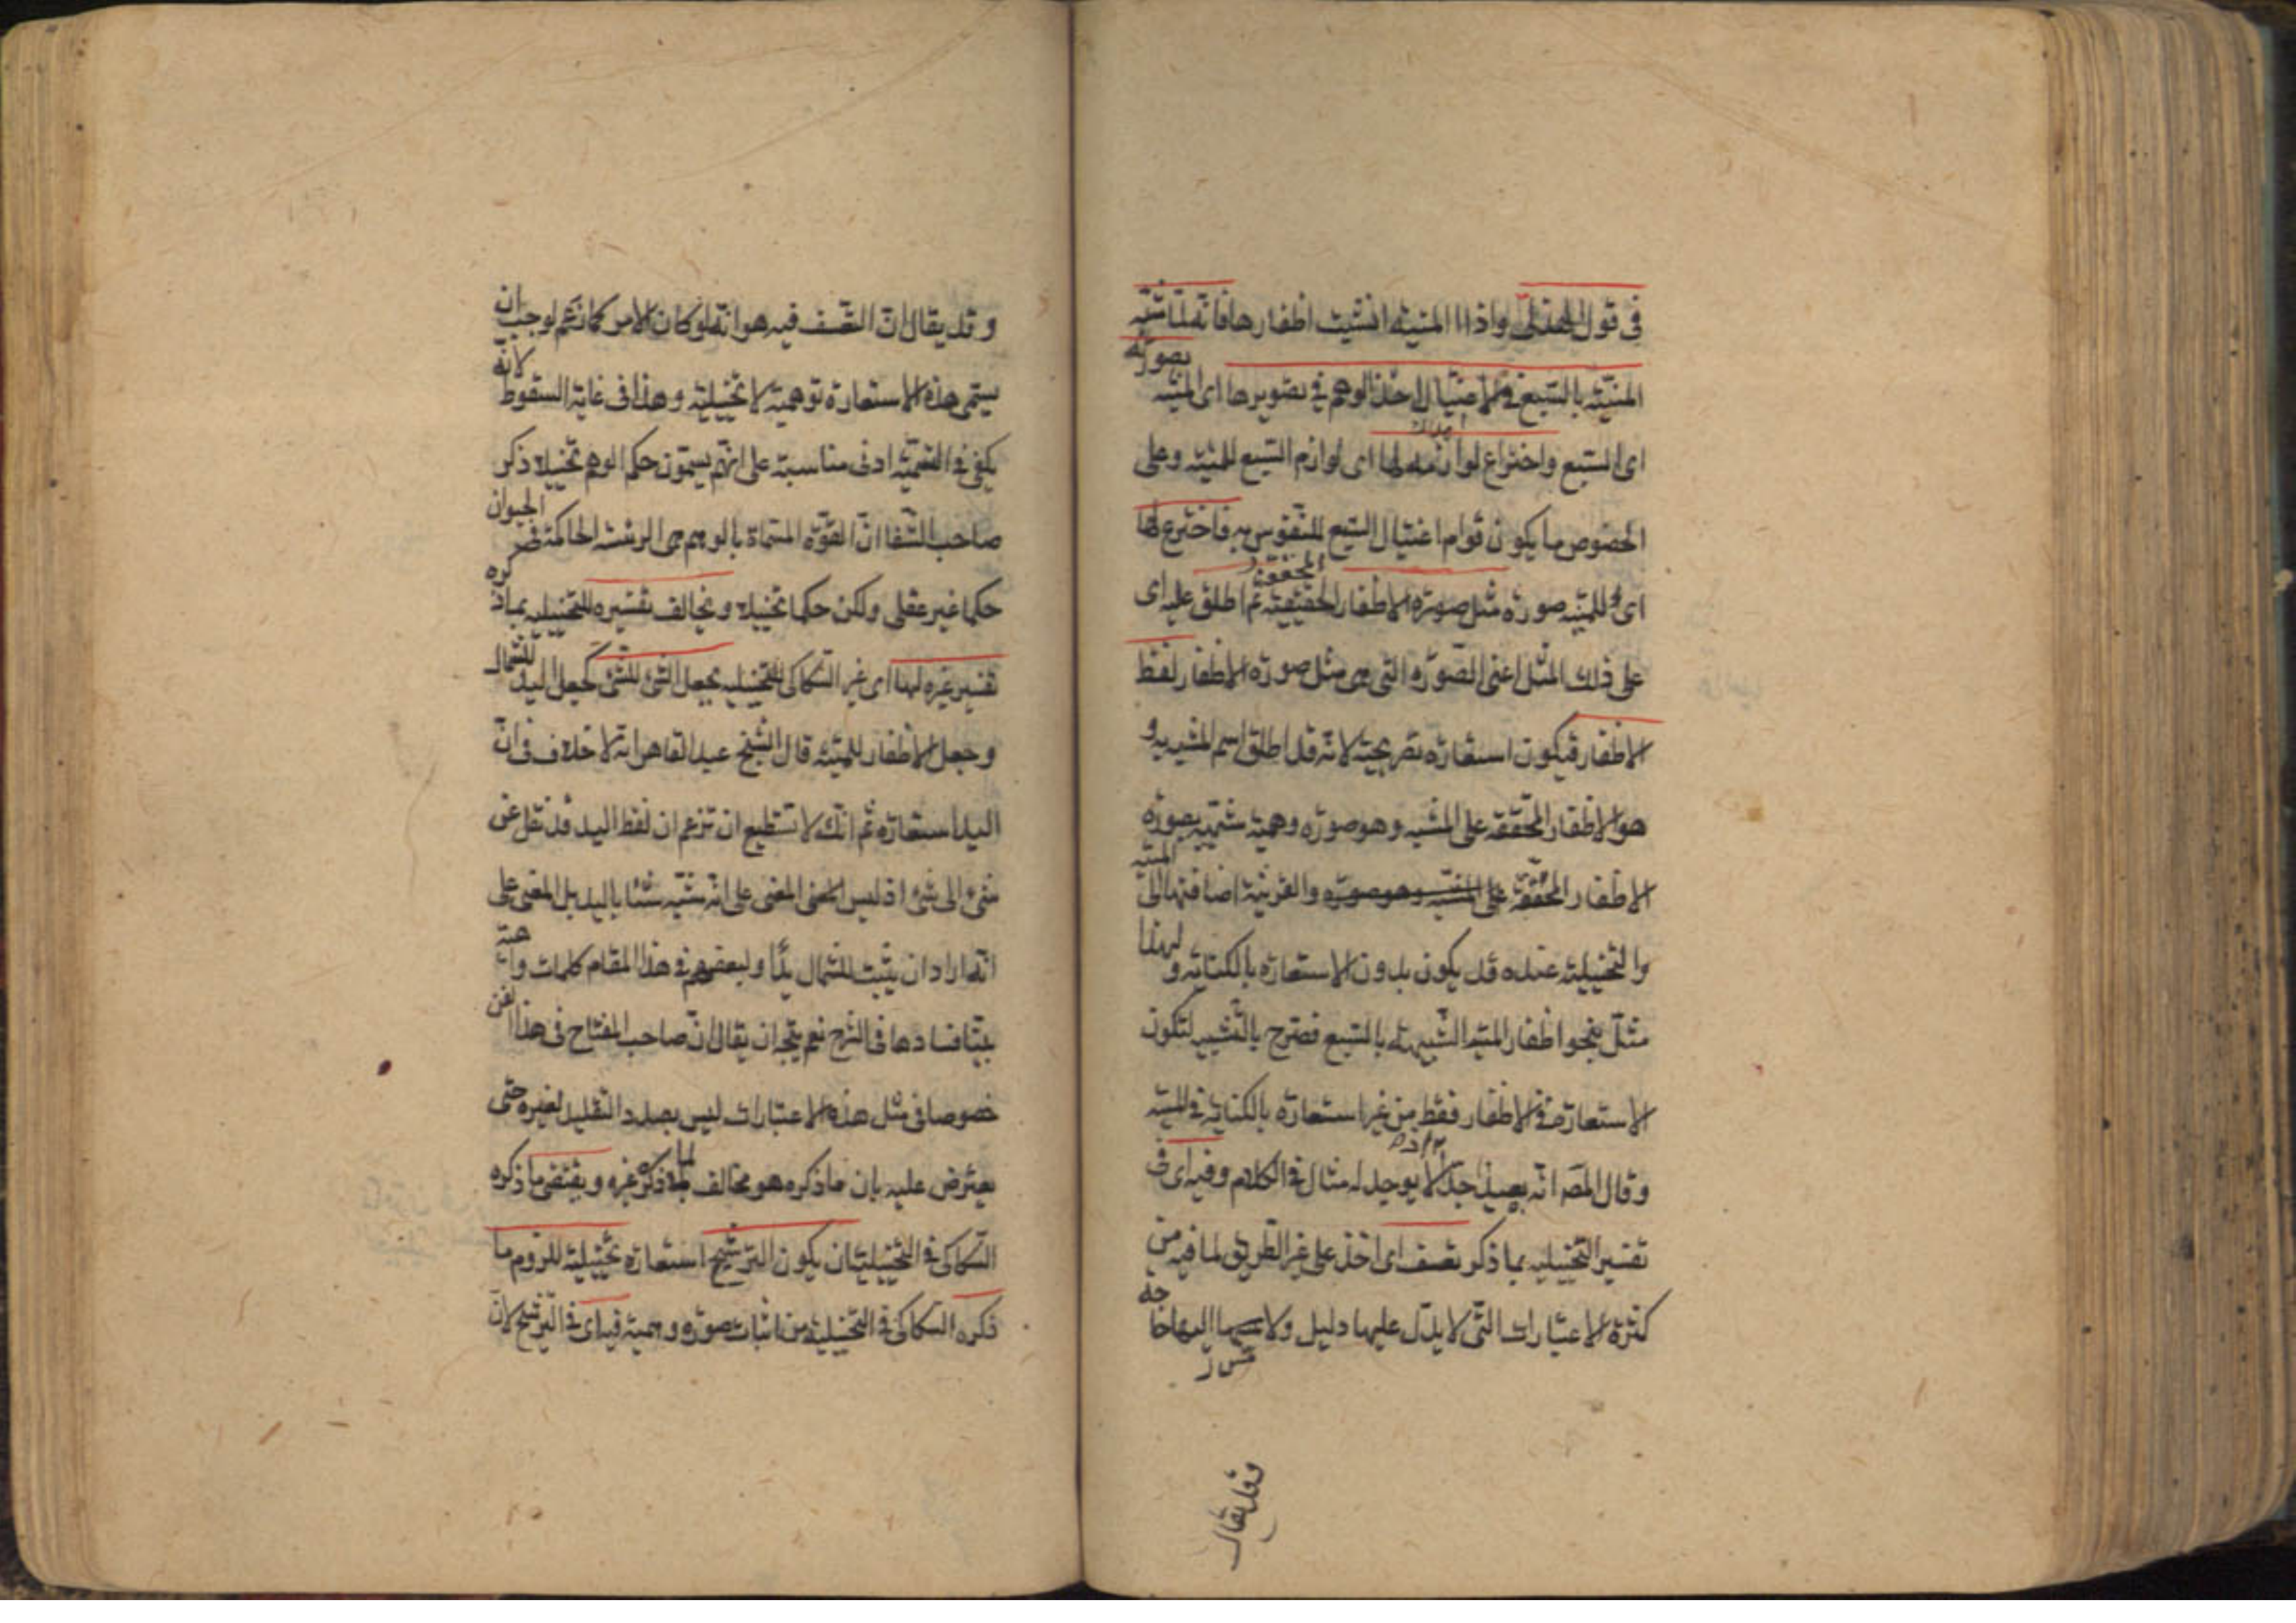 في قول الهذلي واذا المنية انشبت اظفارها فانه لما شبه
المنية بالسبع في الاغتيال اخذ الوهم في تصويرها اى المنية بصورته
اى السبع واختراع لوازمه لها اى لوازم السبع للمنية وعلى
الخصوص ما يكون قوام اغتيال السبع للنفوس به فاخترع لها
اى للمنية صورة مثل صورة الاظفار المحققة ثم اطلق عليه اى
على ذلك المثل اعنى الصورة التى هى مثل صورة الاظفار لفظ
الاظفار فيكون استعارة تصريحية لانه قد اطلق اسم المشبه به و
هو الاظفار المحققة على المشبه وهو صورة وهمية شبيهة بصورة
الاظفار المحققة والقرينة اضافتها الى المنية
والتخييلية عنده قد يكون بدون الاستعارة بالكناية ولهذا
مثل بنحو اظفار المنية الشبيهة بالسبع فصرح بالتشبيه لتكون
الاستعارة في الاظفار فقط من غير استعارة بالكناية في المنية
وقال المص انه بعيد جدا لا يوجد له مثال في الكلام وفيه اى في
تفسير التخييلية بما ذكر تعسف اى اخذ على غير الطريق لما فيه من
كثرة الاعتبارات التى لا يدل عليها دليل ولا تمس اليها حاجة
وقد يقال
وقد يقال ان التعسف فيه هو انه لو كان الامر كما زعم لوجب ان
يسمى هذه الاستعارة توهمية لا تخييلية وهذا في غاية السقوط لانه
يكفى في التسمية ادنى مناسبة على انهم يسمون حكم الوهم تخييلا ذكر
صاحب الشفا ان القوة المسماة بالوهم هى الرئيسة الحاكمة في الحيوان
حكما غير عقلى ولكن حكما تخييلا ويخالف تفسيره للتخييلية بما ذكره
تفسير غيره لها اى غير السكاكى للتخييلية بجعل الشئ للشئ كجعل اليد للشمال
وجعل الاظفار للمنية قال الشيخ عبد القاهر انه لا خلاف في ان
اليد استعارة ثم انك لا تستطيع ان تزعم ان لفظ اليد قد نقل عن
شئ الى شئ اذ ليس المعنى على انه شبه شئا باليد بل المعنى على
انه اراد ان يثبت للشمال يدا ولبعضهم في هذا المقام كلمات واهية
بينا فسادها في الشرح نعم يتجه ان يقال ان صاحب المفتاح في هذا الفن
خصوصا في مثل هذه الاعتبارات ليس بصدد التقليد لغيره حتى
يعترض عليه بان ما ذكره هو مخالف لما ذكره غيره ويقتضى ما ذكره
السكاكى في التخييلية ان يكون الترشيح استعارة تخييلية للزوم ما
ذكره السكاكى في التخييلية من اثبات صورة وهمية فيه اى في الترشيح لان